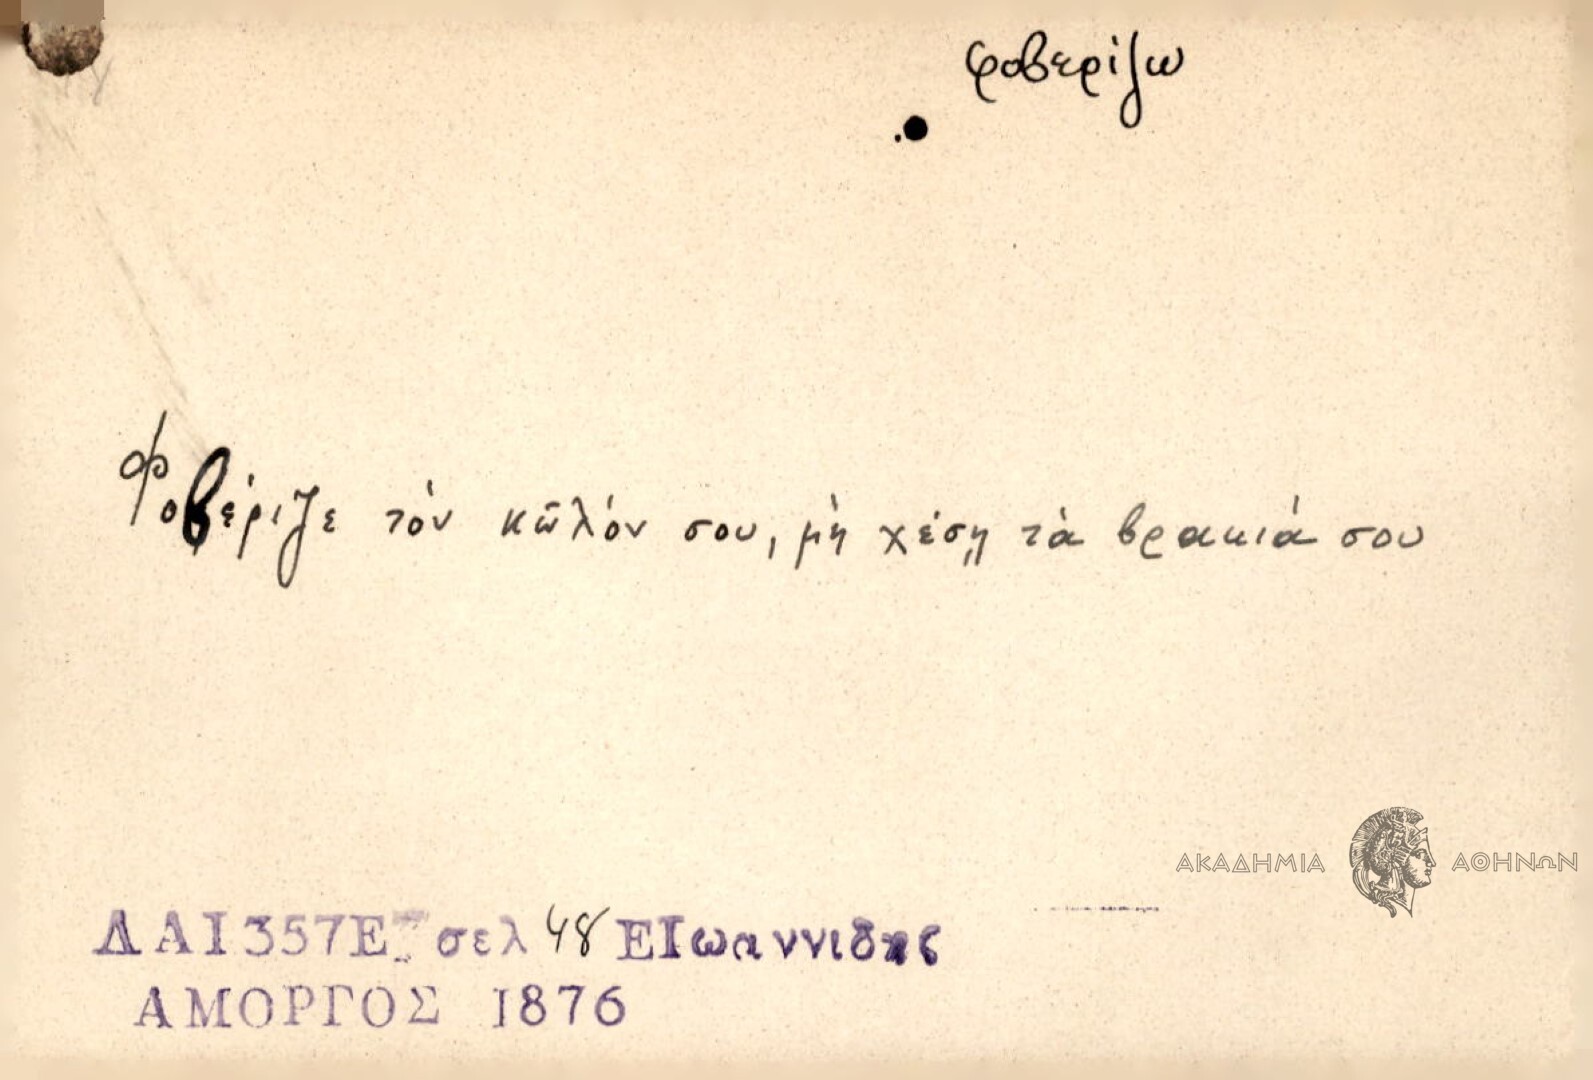 φοβερίζω
Φοβέριζε τὸν κῶλόν σου, μὴ χέσῃ τὰ βρακιά σου
ΑΚΑΔΗΜΙΑ ΑΘΗΝΩΝ
ΔΑΙ357Ε σελ 48 ΕΙωαννιδης
ΑΜΟΡΓΟΣ 1876